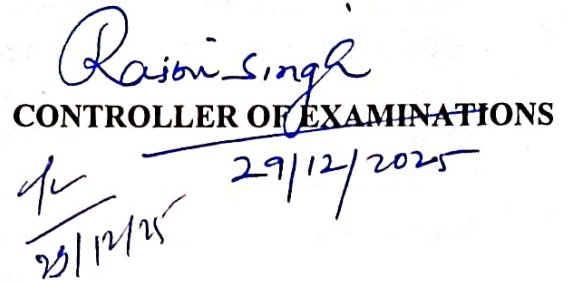 Rajni Singh
CONTROLLER OF EXAMINATIONS
29/12/2025
29/12/25